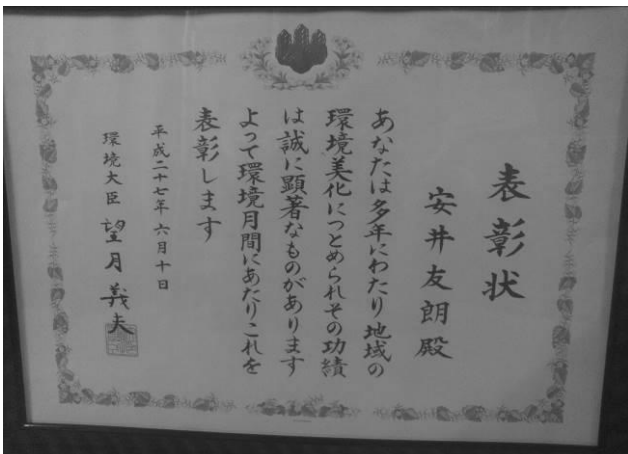 表彰状
安井友朗殿
あなたは多年にわたり地域の
環境美化につとめられその功績
は誠に顕著なものがあります
よって環境月間にあたりこれを
表彰します
平成二十七年六月十日
環境大臣 望月義夫